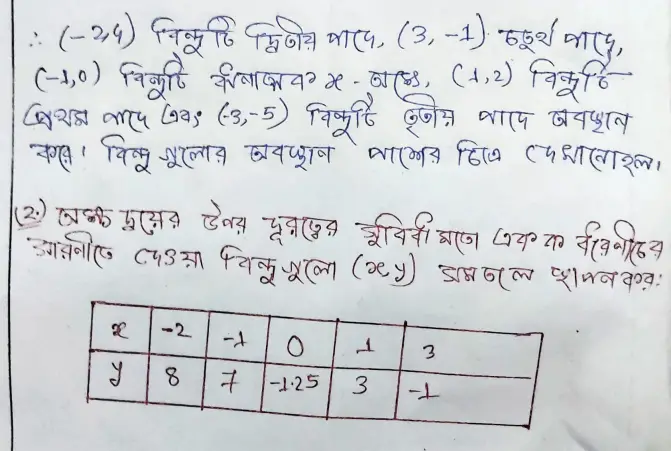 ∴ (-2,4) বিন্দুটি দ্বিতীয় পাদে, (3, -1) চতুর্থ পাদে,
(-1,0) বিন্দুটি ঋণাত্মক x - অক্ষে, (1,2) বিন্দুটি
প্রথম পাদে এবং (-3,-5) বিন্দুটি তৃতীয় পাদে অবস্থান
করে। বিন্দু গুলোর অবস্থান পাশের চিত্রে দেখানোহল।
(2.) অক্ষ দ্বয়ের উপর দূরত্বের সুবিধা মতো একক ধরেনীচের
সারনীতে দেওয়া বিন্দু গুলো (x,y) সমতলে স্থাপনকর:
x -2 -1 0 1 3
y 8 7 -1.25 3 -1